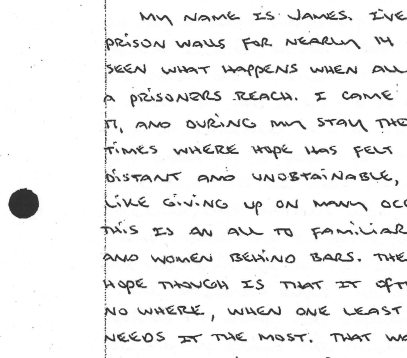 MY NAME IS JAMES. I'VE
PRISON WALLS FOR NEARLY 14
SEEN WHAT HAPPENS WHEN ALL
A PRISONERS REACH. I CAME
17, AND DURING MY STAY THE
TIMES WHERE HOPE HAS FELT
DISTANT AND UNOBTAINABLE,
LIKE GIVING UP ON MANY OCC
THIS IS AN ALL TO FAMILIAR
AND WOMEN BEHIND BARS. THE
HOPE THOUGH IS THAT IT OFT
NO WHERE, WHEN ONE LEAST
NEEDS IT THE MOST. THAT WA